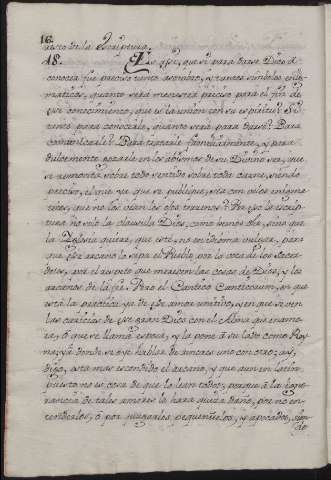 16.
resto de la Escriptura.
18. Es, pues, que si para darse Dios á
conocer fue preciso tanto assombro, y tantos simbolos enig-
maticos, quanto será menester preciso para el fin de
ese conocimiento, que es la union con su espiritu? Si
tanto para conocerle, quanto será para darse? Para
comunicarse? Para tratarle familiarmente, y para
dulcemente gozarle en los abismos de su Divino ser, que
se remonta sobre todo sentido sobre toda carne, siendo
preciso, el que ya que se publique, sea con velos enigma-
ticos, que no los vean los ojos terrenos? Por eso la escrip-
tura no solo la clausula Dios, como hemos dho, sino que
la Iglesia quiere, que esté, no en idioma vulgar, para
que ese arcano lo sepa el Pueblo, por la voca de los Sacer-
dotes, por el respeto que merecen las cosas de Dios, y los
arcanos de la fee. Pero el Cantico Canticorum, en que
está la practica ya de ese amor unitivo, y en que se ven
las caricias de ese gran Dios con el Alma que enamo-
ra, ó que se llama esposa, y la pone á su lado como Rey-
na, y á donde se oye hablar de amores uno con otro; ay,
digo, está mas escondido el arcano, y que aun en latin
puesto no es cosa de que lo lean todos; porque á la igno-
rancia de tales amores le hara quiza daño, por no en-
tenderlos, ó por juzgarlos pequeñuelos, y apocados, sien-
do